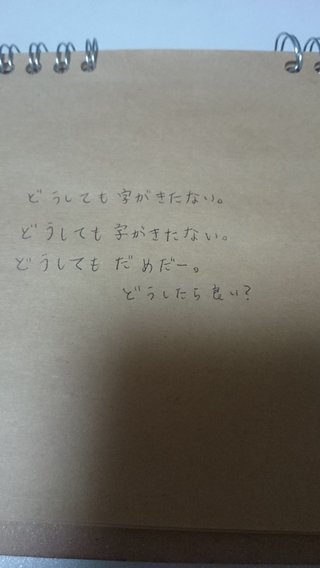 どうしても字がきたない。
どうしても字がきたない。
どうしてもだめだー。
どうしたら良い?